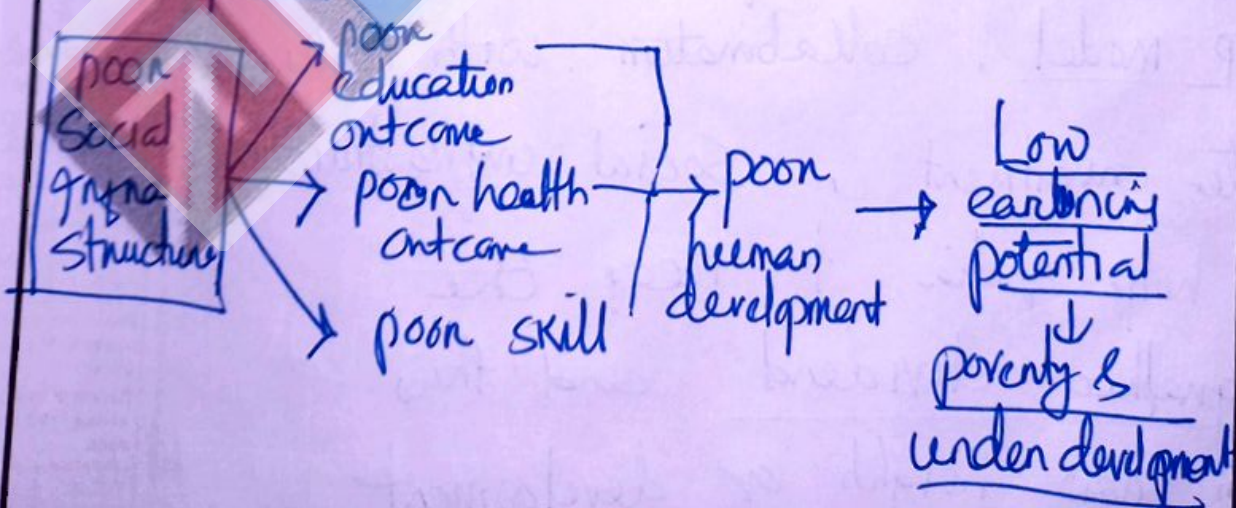 poor
social
infra
structure
poor
education
outcome
poor health
outcome
poor skill
poor
human
development
Low
earning
potential
poverty &
under development